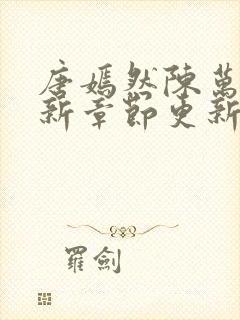 唐嫣然陳萬
新章節更新
羅劍